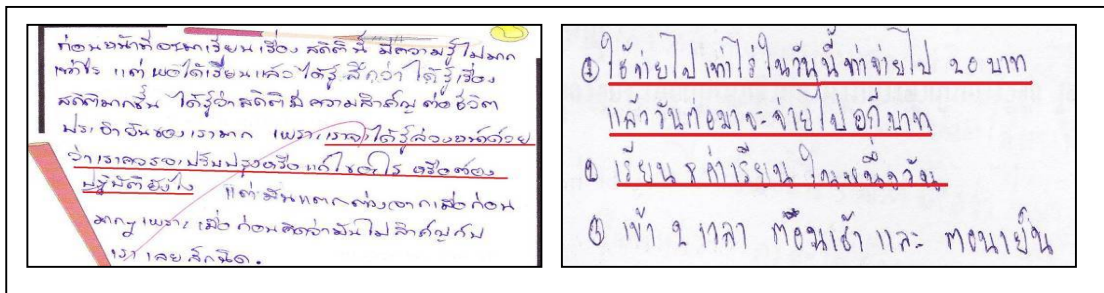 ก่อนหน้าที่จะมาเรียนเรื่อง สถิตินี้ มีความรู้ไม่มาก
เท่าไร แต่ พอได้เรียนแล้วได้รู้สึกว่า ได้รู้เรื่อง
สถิติมากขึ้น ได้รู้ว่าสถิติมีความสำคัญต่อชีวิต
ประจำวันของเรามาก เพราะเราจะได้รู้ล่วงหน้าด้วย
ว่าเราควรจะปรับปรุงหรือแก้ไขอะไร หรือต้อง
ปฏิบัติยังไง แต่มันแตกต่างจากเมื่อก่อน
มากๆ เพราะ เมื่อก่อนคิดว่ามันไม่สำคัญกับ
เราเลยสักนิด.
ใช้จ่ายไปเท่าไรในวันนี้ ถ้าจ่ายไป 20 บาท
แล้ววันต่อมาจะจ่ายไปอีกกี่บาท
เรียน ค่าเรียน ในหนึ่งวัน
③ เข้า 2 เวลา ตอนเช้า และ ตอนเย็น